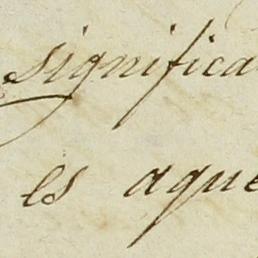 significa
es aque